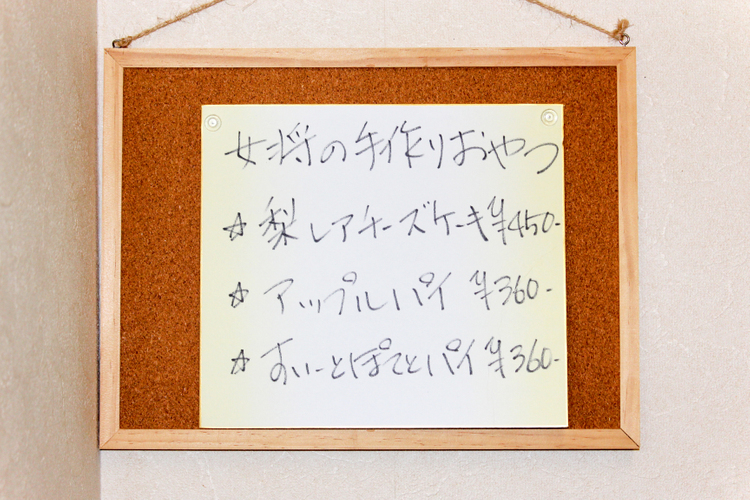 女将の手作りおやつ
☆梨レアチーズケーキ¥450-
☆アップルパイ ¥360-
☆すいーとぽてとパイ¥360-